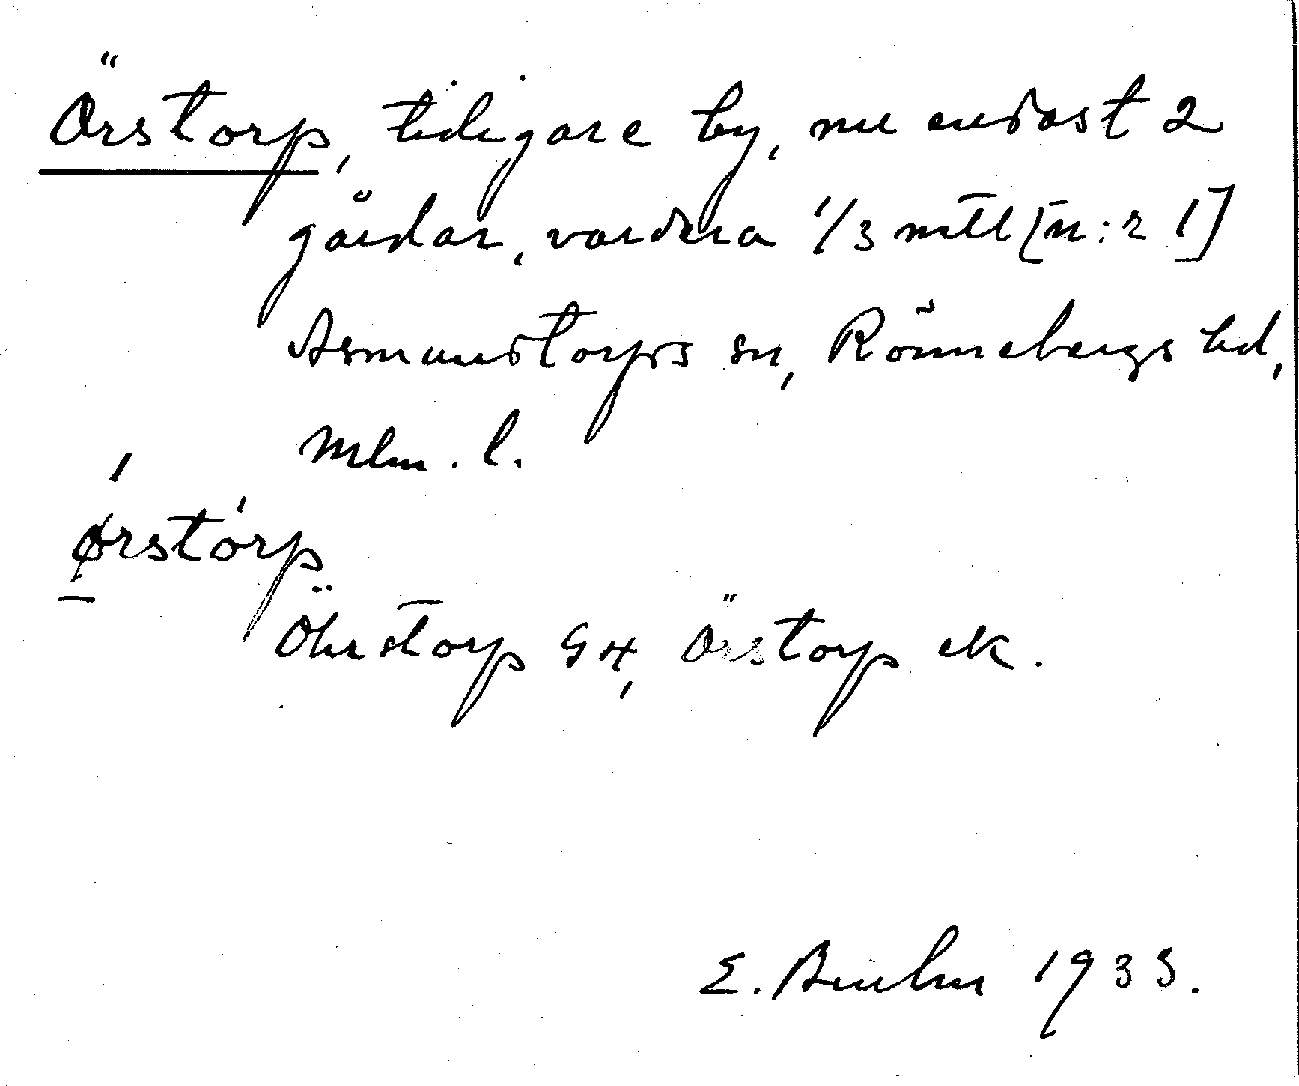 Örstorp, tidigare by, nu endast 2
gårdar, vardera 1/3 mtl [n:r 1]
Asmundtorps sn, Rönnebergs hd,
Mlm. l.
ørstórp
Öhrstorp GK, Örstorp ek.
E. 1933.